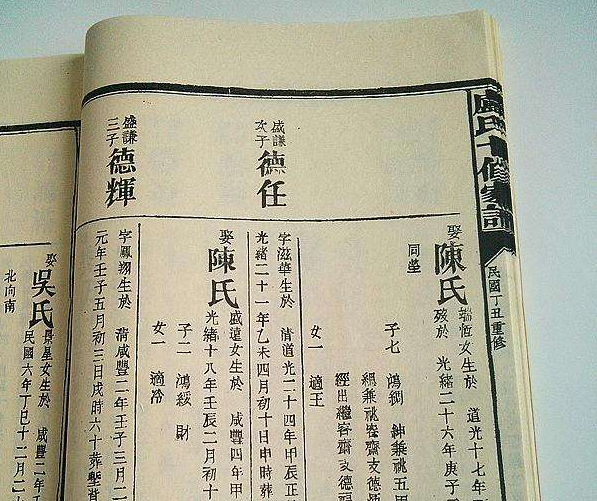 盧氏十修家譜
民國丁丑重修
娶陳氏
瑞恆女生於 道光十七年
歿於 光緒二十六年庚子
同塋
子七 鴻綢 紳兼祧五甲
兼祧容齋支德
經出繼容齋支德福
女一 適王
盛謙次子德任
字滋華生於 清道光二十四年甲辰正
光緒二十一年乙未四月初十日申時葬
娶陳氏
盛遠女生於 咸豐四年甲
光緒十八年壬辰二月初十
子二 鴻綏 財
女一 適冷
盛謙三子德輝
字鳳翔生於 清咸豐二年壬子三月二
元年壬子五月初三日戌時六十葬塋背
娶吳氏
景星女生於 咸豐二年
民國六年丁巳十二月二
北向南